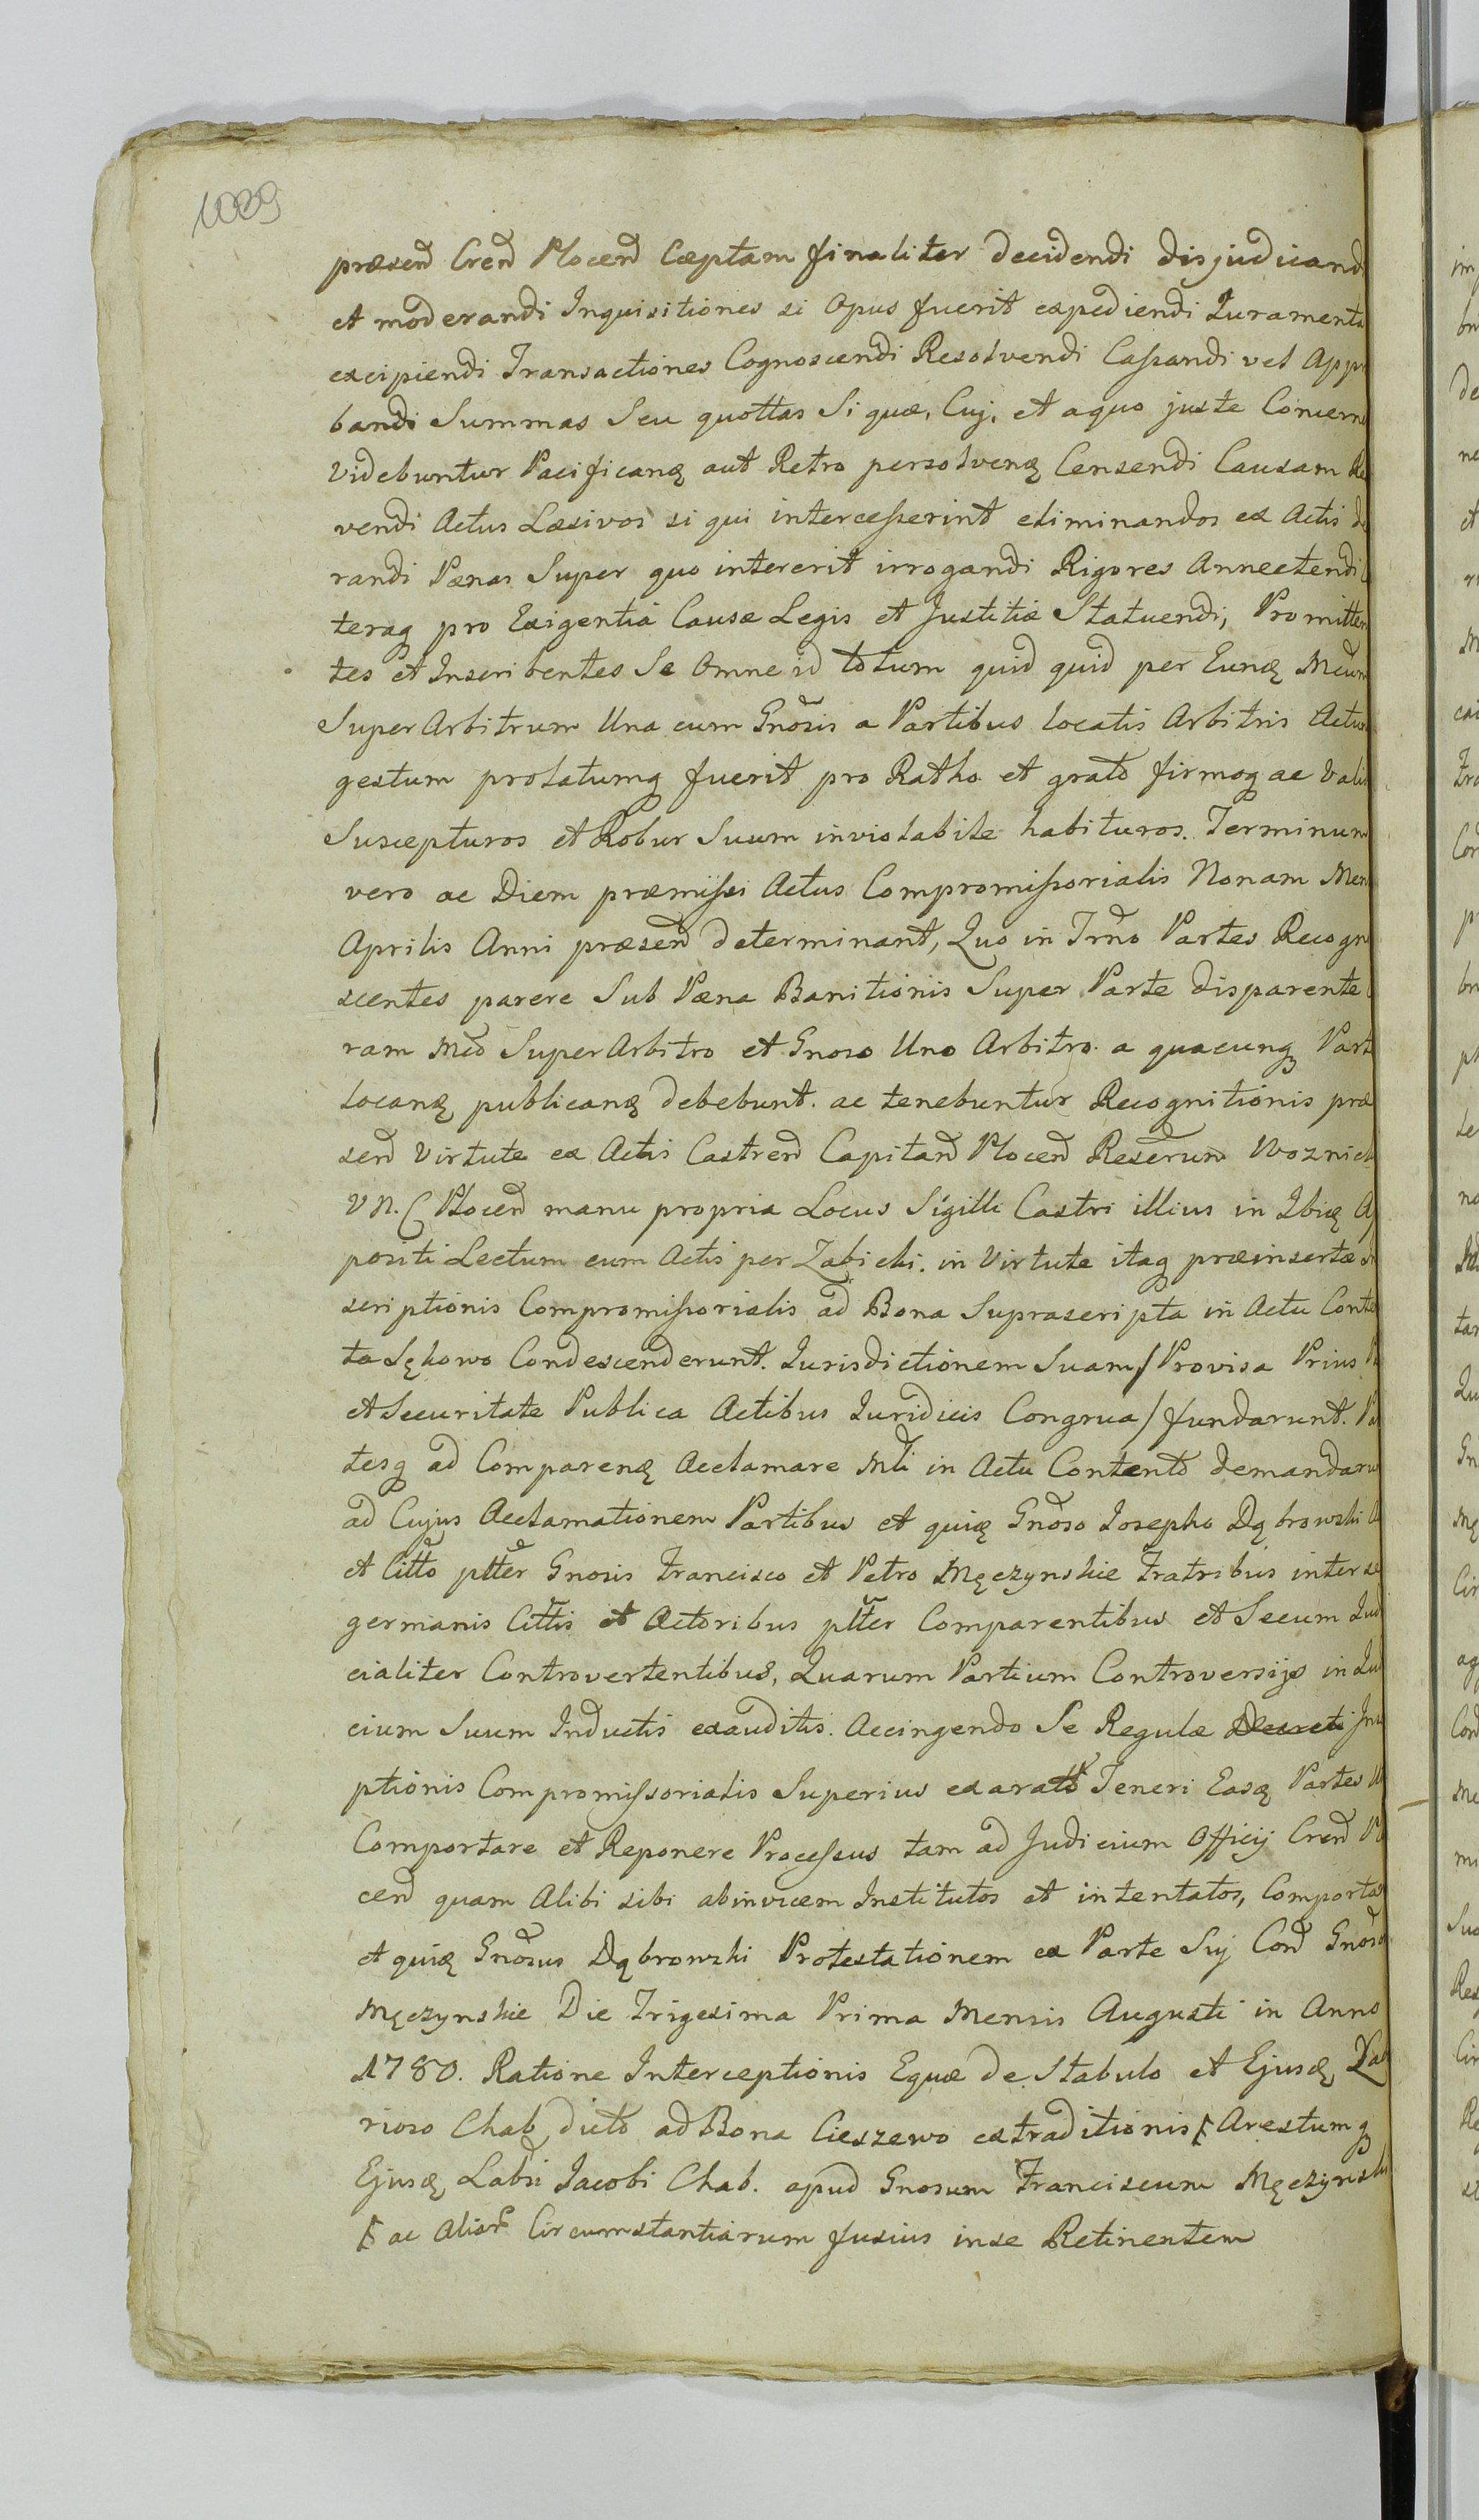 1089
præsen̄d Cren̄d Plocen̄d Cæptam finaliter decidendi disjudicand
et moderandi Inquisitiones si Opus fuerit expediendi Iuramenta
excipiendi Transactiones Cognoscendi Resolvendi Cassandi vel App
bandi Summas Seu quottas Si quæ, Cuj, et a quo juste Concern
Videbuntur Pacificanꝗ aut Retro persolvenꝗ Censendi Causam Re
vendi Actus Læsivos si qui intercesserint eliminandos ex Actis de
randi Pænas Super quo intererit irrogandi Rigores Annectendi
teraq pro Exigentia Causæ Legis et Justitiæ Statuendi, Promitten
tes et Inscribentes Se Omne id totum quid quid per Eunꝗ Mcum
Super Arbitrum Una cum Gnōsis a Partibus locatis Arbitris Actum
gestum prolatumq fuerit pro Ratho et grato firmoq ac Vali
Suscepturos et Robur Suum inviolabile habituros. Terminum
vero ac Diem præmissi Actus Compromissorialis Nonam Men
Aprilis Anni præsen̄d determinant, Quo in Trn̄o Partes Recogn
scentes parere Sub Pæna Banitionis Super Parte disparente
ram Mco Super Arbitro et Gnoso Uno Arbitro a quacunq Part
locanꝗ publicanꝗ debebunt. ac tenebuntur Recognitionis præ
sen̄d Virtute ex Actis Castren̄d Capitan̄d Plocen̄d Reserum Woznick
V N. C Plocen̄d manu propria Locus Sigilli Castri illius in Ibiꝗ A
positi Lectum cum Actis per Zabicki. in Virtute itaq præinsertæ
scriptionis Compromissorialis ad Bona Suprascripta in Actu Conte
ta Sękowo Condescenderunt. Iurisdictionem Suam / Provisa Prius
et Securitate Publica Actibus Iuridicis Congrua / fundarunt. Pa
tesq ad Comparenꝗ Acclamare Mlī in Actu Contento demandaru
ad Cujus Acclamationem Partibus et quiꝗ Gnōso Iosepho Dąbrowski
et Citt̄o ptt̄er Gnosis Francisco et Petro Męczynskie Fratribus inter se
germanis Citt̄is et Actoribus ptt̄er Comparentibus et Secum Jud
cialiter Controvertentibus, Quarum Partium Controversijs in Iud
cium Suum Inductis exauditis. Accingendo Se Regulæ Decreti Ins
ptionis Compromissorialis Superius exaratæ Teneri Easꝗ Partes
Comportare et Reponere Processus tam ad Judicium Officij Cren̄d
cen̄d quam Alibi sibi abinvicem Institutos et intentatos, Comportas
et quiꝗ Gnōsus Dąbrowski Protestationem ex Parte Sui Con̄d Gnōso
Męczynskie Die Trigesima Prima Mensis Augusti in Anno
1780. Ratione Interceptionis Equæ de Stabulo et Ejusꝗ Lab
rioso Chab dicto ad Bona Cieszewo extraditionis Arestumq
Ejusꝗ Labsi Jacobi Chab. apud Gnosum Franciscum Męczynski
ac Alior̄ Circumstantiarum fusius in se Retinentem